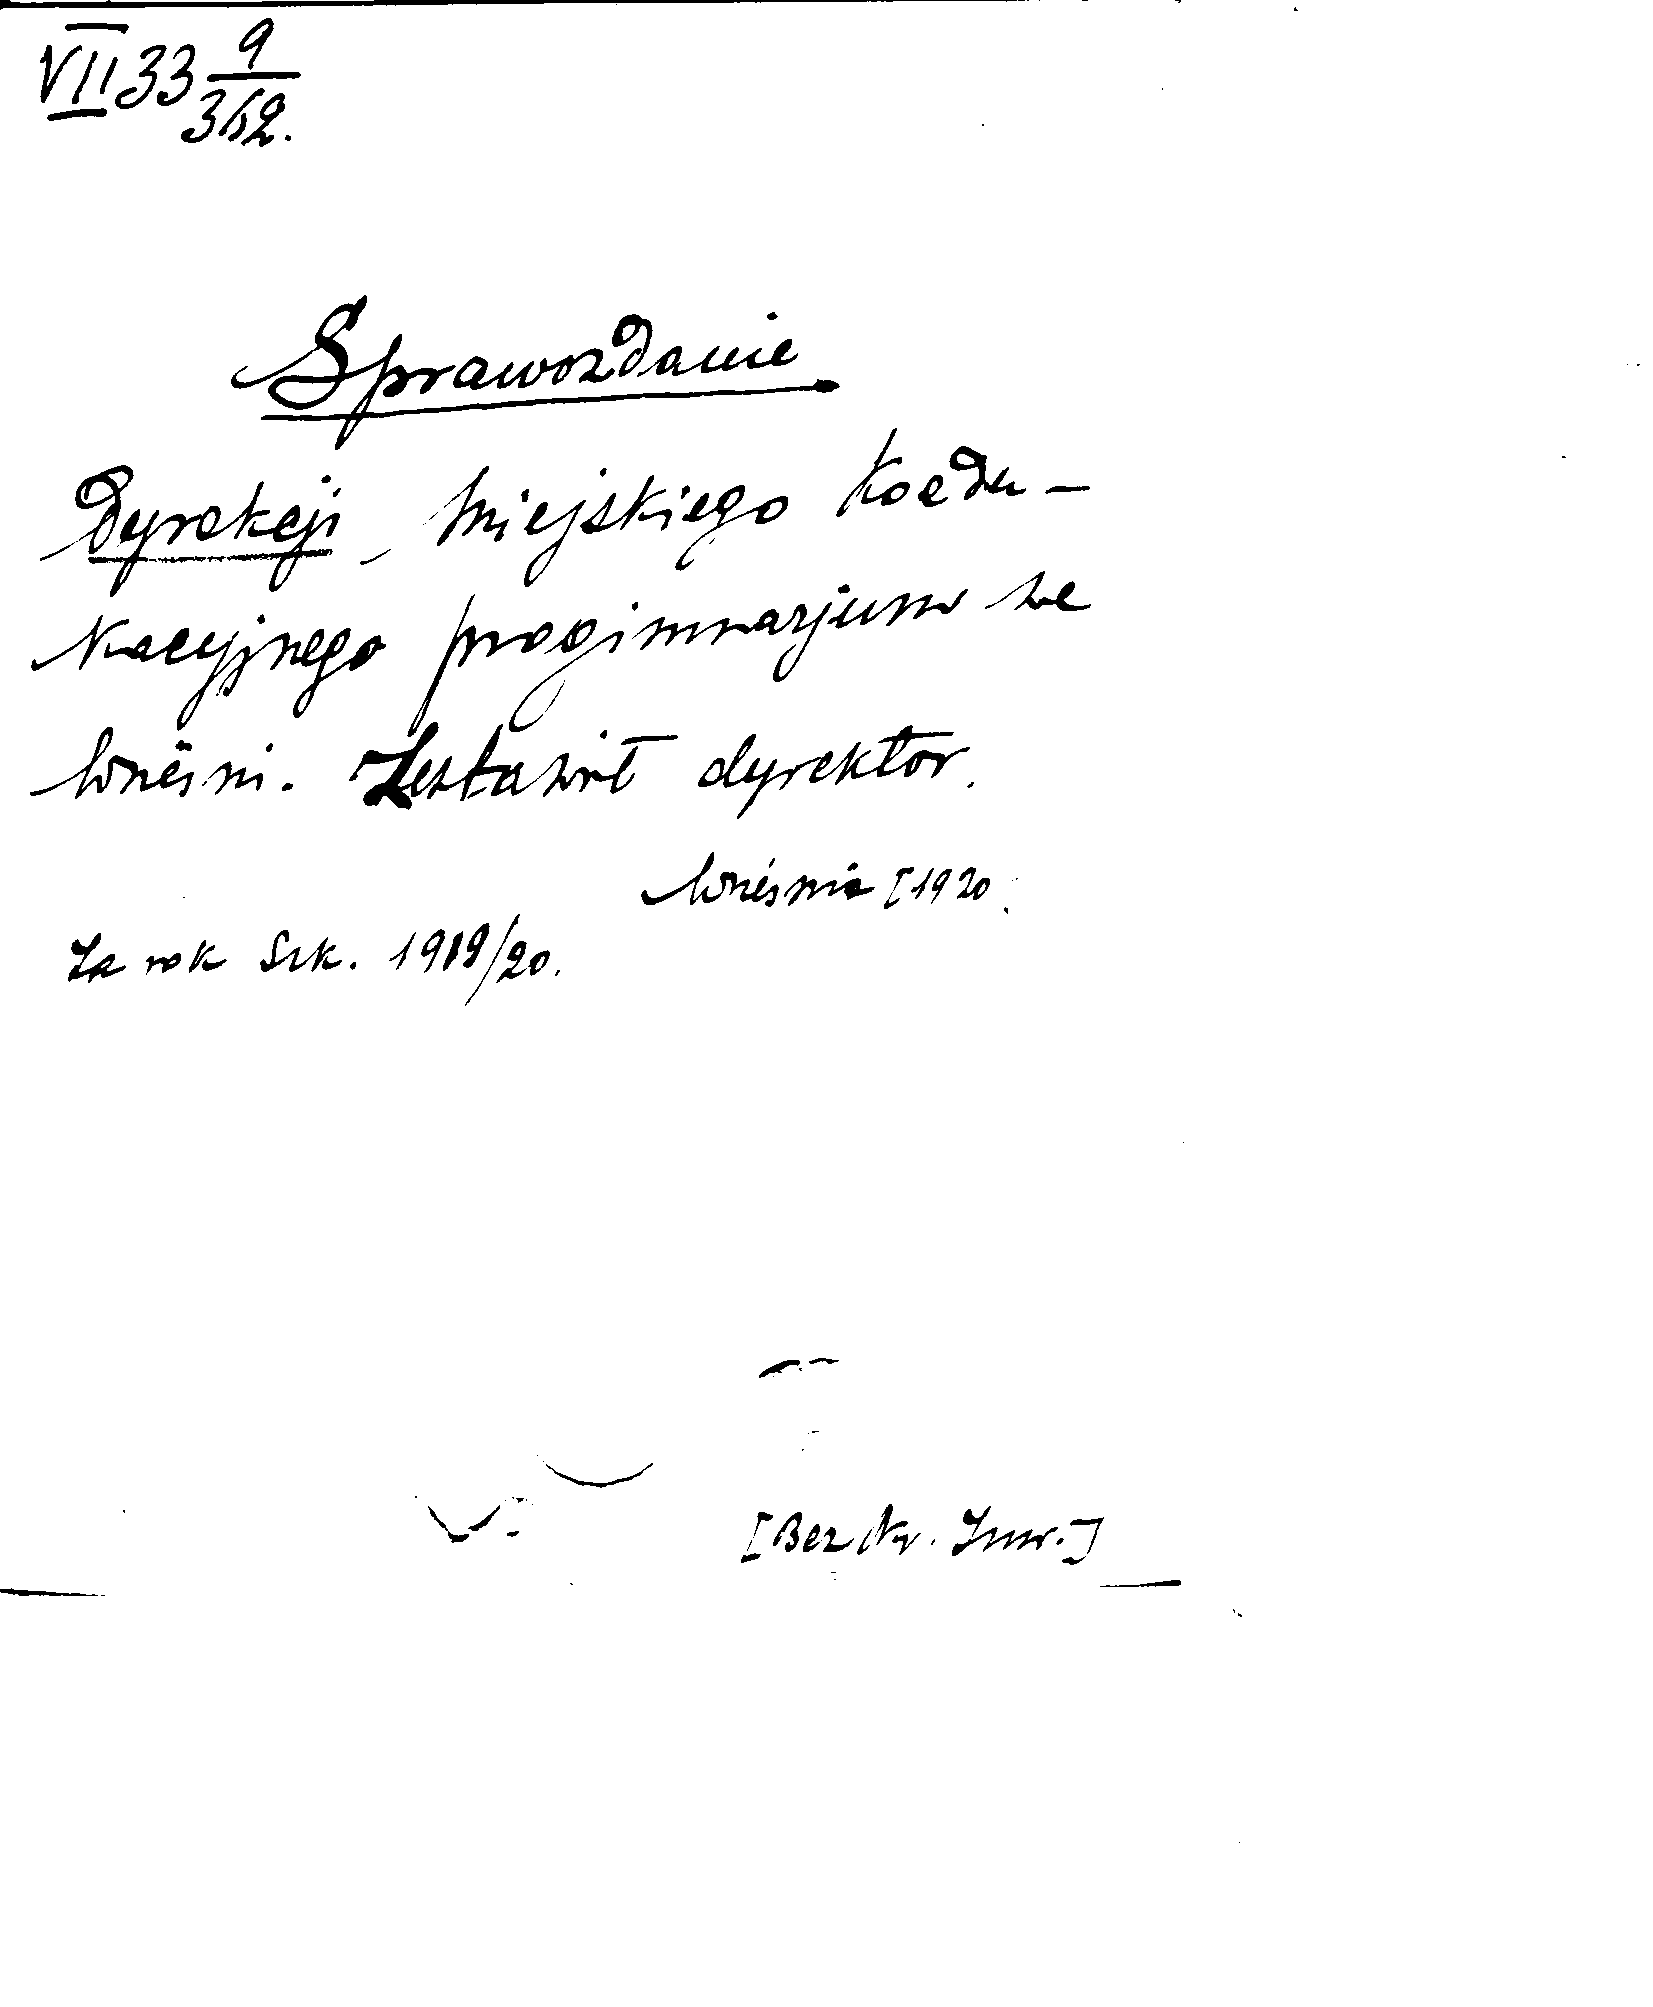 VII 33 9/362.
Sprawozdanie
Dyrekcji Miejskiego Koedu-
kacyjnego progimnazjum we
Wrześni. Zestawił dyrektor.
Września [1920.
Za rok szk. 1919/20.
[Bez Nr. Inw.]